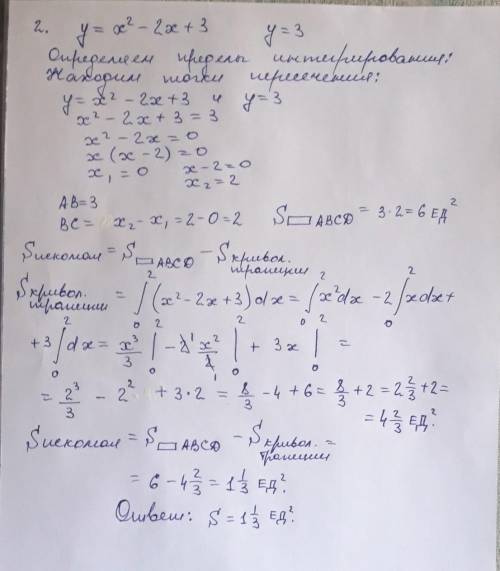 2. y = x² - 2x + 3 y = 3
Определяем пределы интегрирования:
Находим точки пересечения:
y = x² - 2x + 3 и y = 3
x² - 2x + 3 = 3
x² - 2x = 0
x (x - 2) = 0
x₁ = 0 x - 2 = 0
x₂ = 2
AB = 3
BC = x₂ - x₁ = 2 - 0 = 2 S▭ABCD = 3·2 = 6 ЕД²
Sискомая = S▭ABCD - Sкривол. трапеции
Sкривол. трапеции = ∫₀² (x² - 2x + 3) dx = ∫₀² x² dx - 2 ∫₀² x dx +
+ 3 ∫₀² dx = x³/3 |₀² - 2 x²/2 |₀² + 3x |₀² =
= 2³/3 - 2² + 3·2 = 8/3 - 4 + 6 = 8/3 + 2 = 2 2/3 + 2 =
= 4 2/3 ЕД².
Sискомая = S▭ABCD - Sкривол. трапеции =
= 6 - 4 2/3 = 1 1/3 ЕД².
Ответ: S = 1 1/3 ЕД².